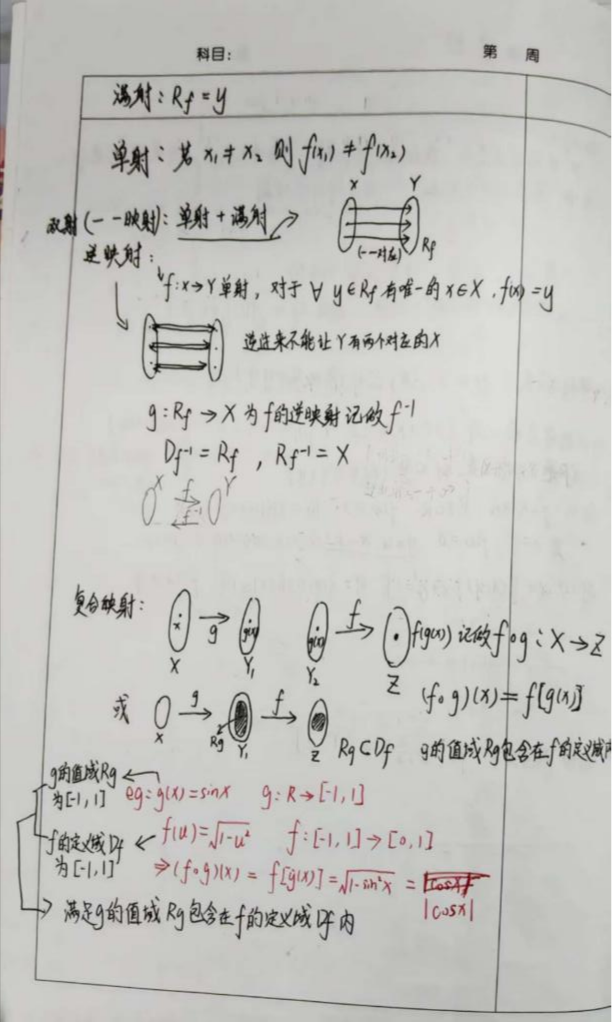 科目: 第 周
满射: Rf = y
单射: 若 x₁ ≠ x₂ 则 f(x₁) ≠ f(x₂)
X Y
双射(一一映射): 单射 + 满射
(一一对应) Rf
逆映射:
f: x→Y 单射, 对于 ∀ y∈Rf 有唯一的 x∈X, f(x) = y
逆过来不能让Y有两个对应的X
g: Rf → X 为f的逆映射 记做 f⁻¹
Df⁻¹ = Rf , Rf⁻¹ = X
X f Y
f⁻¹
复合映射:
x g g(x) g(x) f f(g(x)) 记做 f∘g: X→Z
X Y₁ Y₂ Z
(f∘g)(x) = f[g(x)]
或 g f
X Rg Y₁ Z Rg⊂Df g的值域Rg包含在f的定义域内
g的值域Rg
为[-1, 1]
eg: g(x) = sinx g: R→[-1, 1]
f的定义域Df
为[-1, 1]
f(u) = √1-u² f: [-1, 1]→[0, 1]
⇒(f∘g)(x) = f[g(x)] = √1-sin²x = |cosx|
满足g的值域Rg包含在f的定义域Df内